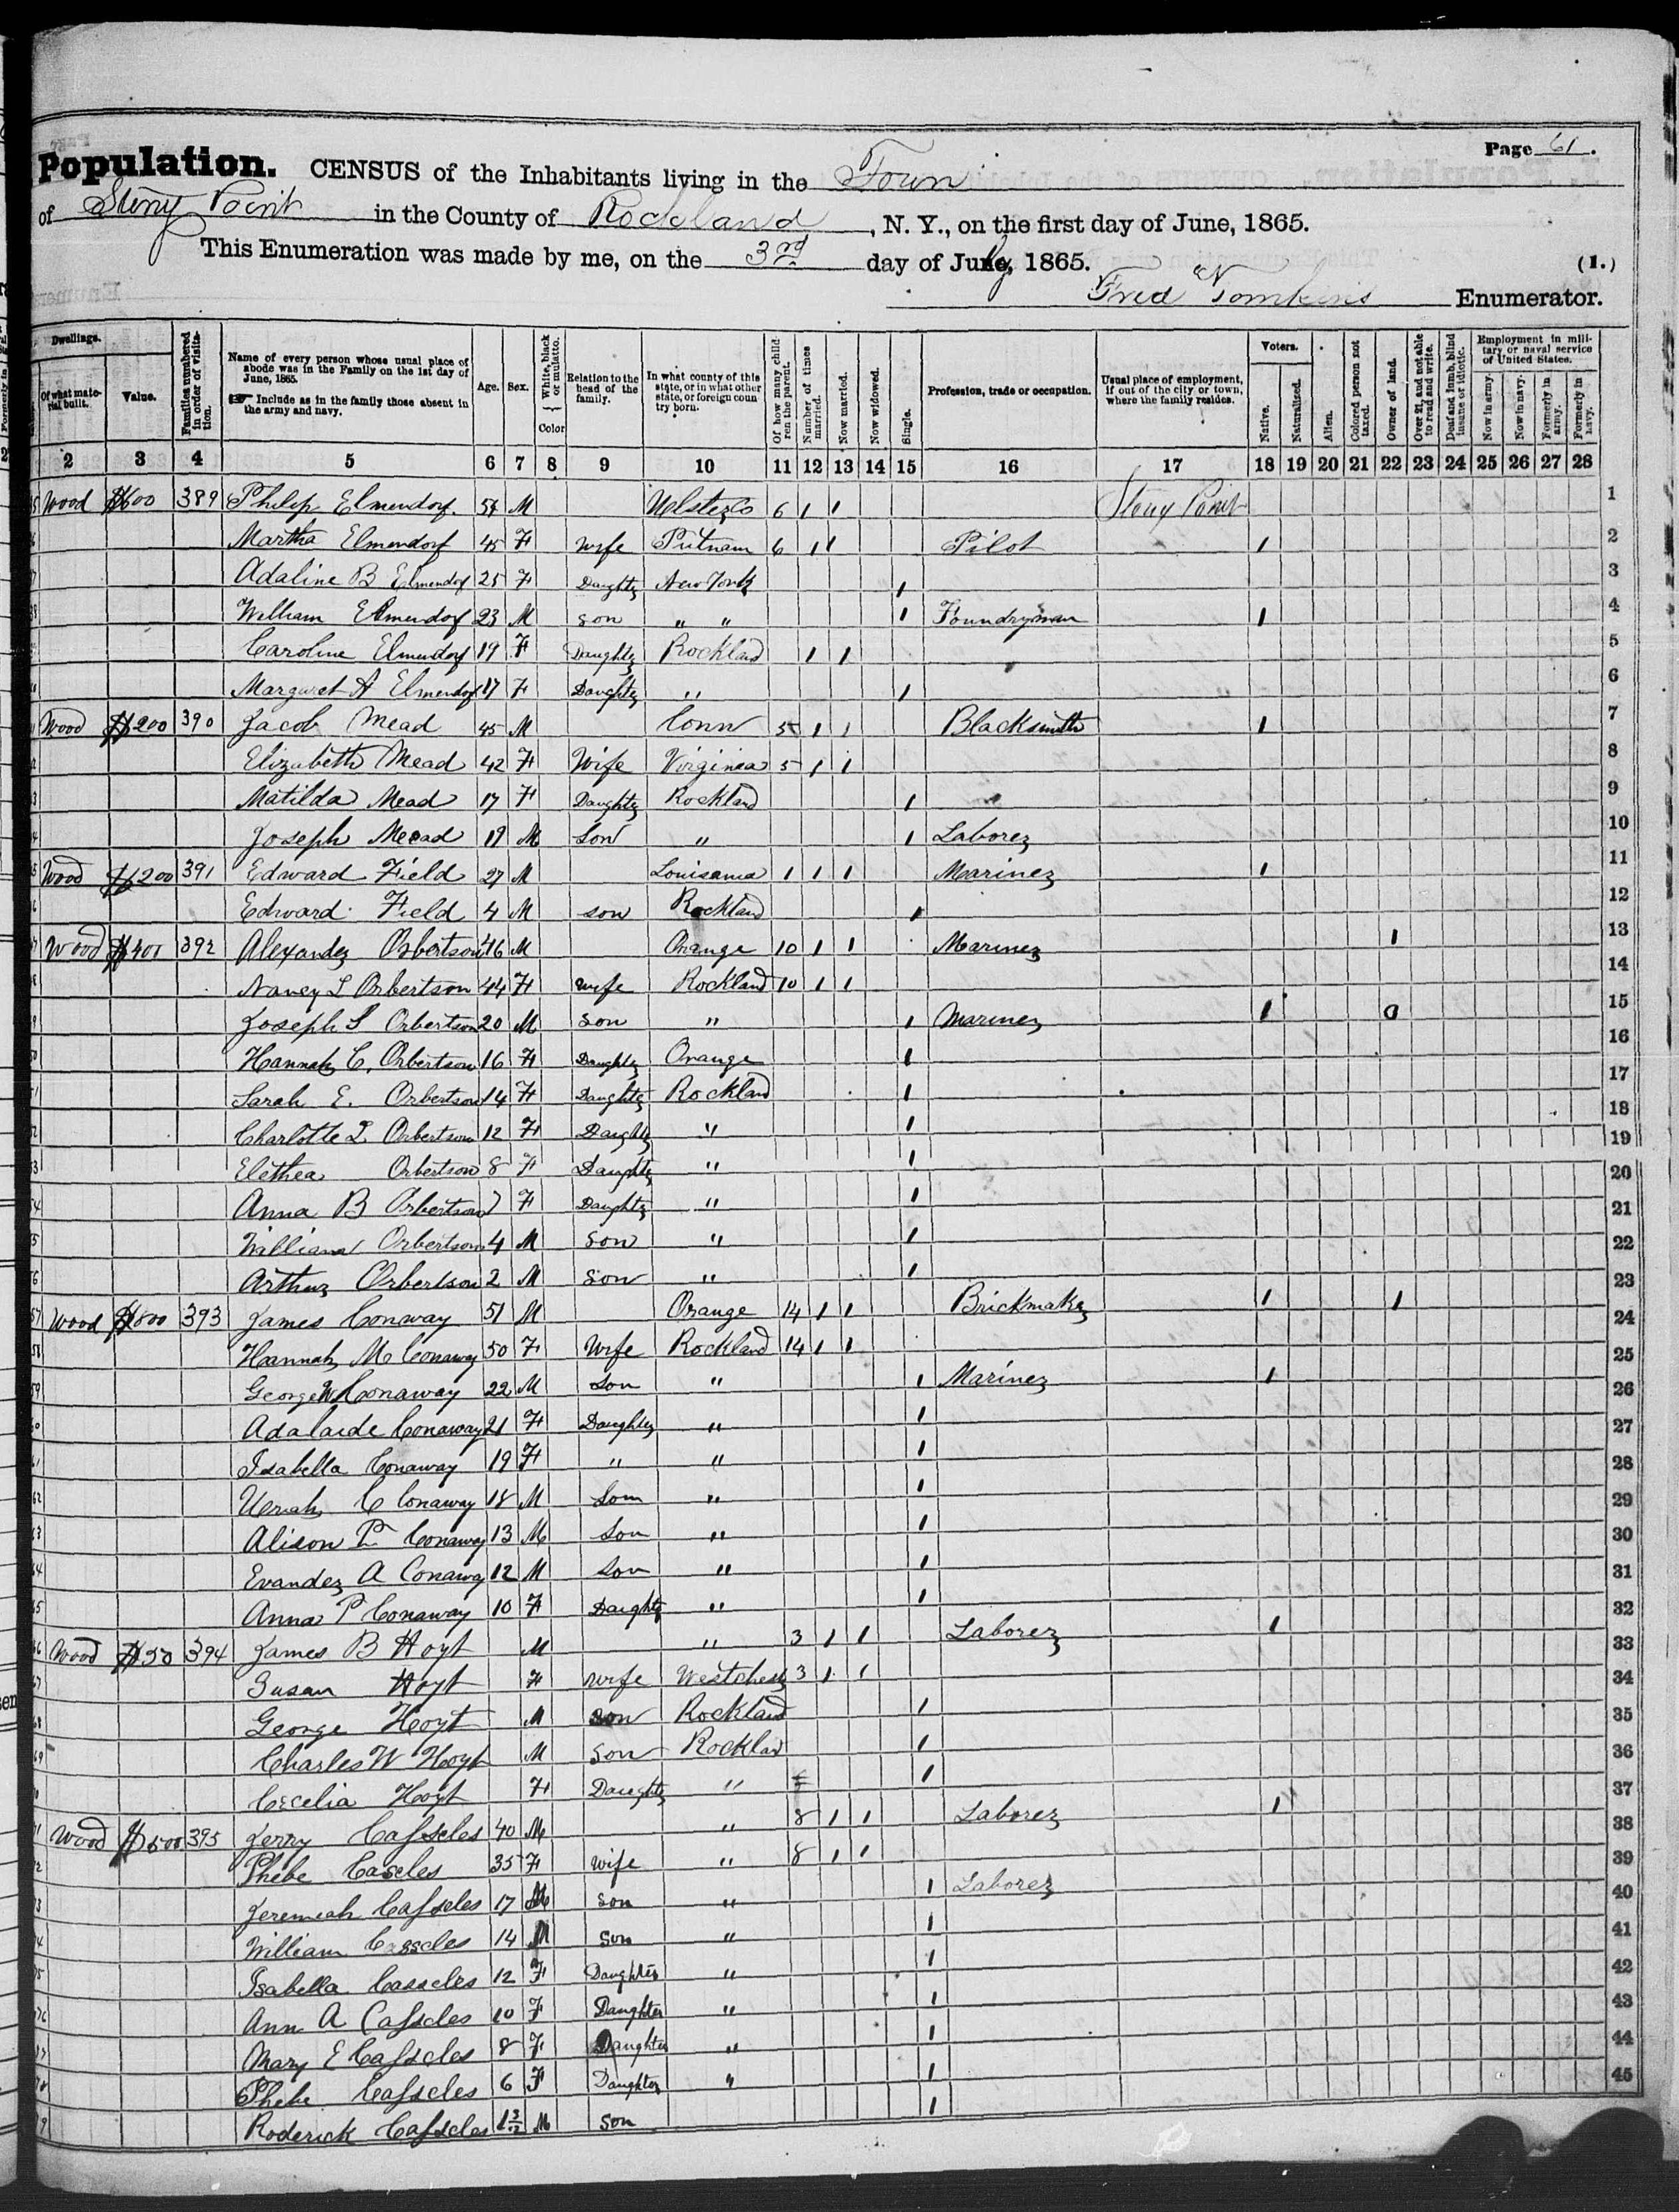 Page 61.
Population. CENSUS of the Inhabitants living in the Town
of Stony Point in the County of Rockland, N. Y., on the first day of June, 1865.
This Enumeration was made by me, on the 3rd day of July, 1865.
(1.)
Fred Tomkins Enumerator.
Dwellings.
Of what material built.
Value.
Families numbered in order of visitation.
Name of every person whose usual place of abode was in the Family on the 1st day of June, 1865.
Include as in the family those absent in the army and navy.
Age.
Sex.
White, black or mulatto.
Color
Relation to the head of the family.
In what county of this state, or in what other state, or foreign country born.
Of how many children the parent.
Number of times married.
Now married.
Now widowed.
Single.
Profession, trade or occupation.
Usual place of employment, if out of the city or town, where the family resides.
Voters.
Native.
Naturalized.
Alien.
Colored person not taxed.
Owner of land.
Over 21, and not able to read and write.
Deaf and dumb, blind insane or idiotic.
Employment in military or naval service of United States.
Now in army.
Now in navy.
Formerly in army.
Formerly in navy.
2 3 4 5 6 7 8 9 10 11 12 13 14 15 16 17 18 19 20 21 22 23 24 25 26 27 28
Wood $600 389 Philip Elmendorf. 54 M Ulster Co 6 1 1 Stony Point 1
Martha Elmendorf 45 F Wife Putnam 6 1 1 Pilot 1 2
Adaline B Elmendorf 25 F Daughter New York 1 3
William Elmendorf 23 M Son " " 1 Foundryman 1 4
Caroline Elmendorf 19 F Daughter Rockland 1 1 5
Margaret A Elmendorf 17 F Daughter " 1 6
Wood $200 390 Jacob Mead 45 M Conn 5 1 1 Blacksmith 1 7
Elizabeth Mead 42 F Wife Virginia 5 1 1 8
Matilda Mead 17 F Daughter Rockland 1 9
Joseph Mead 19 M Son " 1 Laborer 10
Wood $200 391 Edward Field 27 M Louisania 1 1 1 Mariner 1 11
Edward Field 4 M son Rockland 1 12
Wood $400 392 Alexander Orbertson 46 M Orange 10 1 1 Mariner 1 13
Nancy L Orbertson 44 F wife Rockland 10 1 1 14
Joseph S Orbertson 20 M Son " 1 Mariner 1 0 15
Hannah C. Orbertson 16 F Daughter Orange 1 16
Sarah E. Orbertson 14 F Daughter Rockland 1 17
Charlotte L Orbertson 12 F Daughter " 1 18
Elethea Orbertson 8 F Daughter " 1 19
Anna B Orbertson 7 F Daughter " 1 20
William Orbertson 4 M Son " 1 21
Arthur Orbertson 2 M Son " 1 22
Wood $800 393 James Conway 51 M Orange 14 1 1 Brickmaker 1 1 23
Hannah M Conaway 50 F Wife Rockland 14 1 1 24
George W Conaway 22 M Son " 1 Mariner 1 25
Adalaide Conaway 21 F Daughter " 1 26
Isabella Conaway 19 F " " 1 27
Uriah C Conaway 18 M Son " 1 28
Alison P Conaway 13 M Son " 1 29
Evander A Conaway 12 M Son " 1 30
Anna P Conaway 10 F Daughter " 1 31
Wood $50 394 James B Hoyt M " 3 1 1 Laborer 1 32
Susan Hoyt F wife Westchester 3 1 1 33
George Hoyt M Son Rockland 1 34
Charles W Hoyt M Son Rockland 1 35
Cecelia Hoyt F Daughter " 1 36
Wood $500 395 Jerry Casscles 40 M " 8 1 1 Laborer 1 37
Phebe Cascles 35 F Wife " 8 1 1 38
Jeremiah Casscles 17 M Son " 1 Laborer 39
William Casscles 14 M Son " 1 40
Isabella Casscles 12 F Daughter " 1 41
Ann A Casscles 10 F Daughter " 1 42
Mary E Casscles 8 F Daughter " 1 43
Phebe Casscles 6 F Daughter " 1 44
Roderick Casscles 1 3/12 M Son 1 45